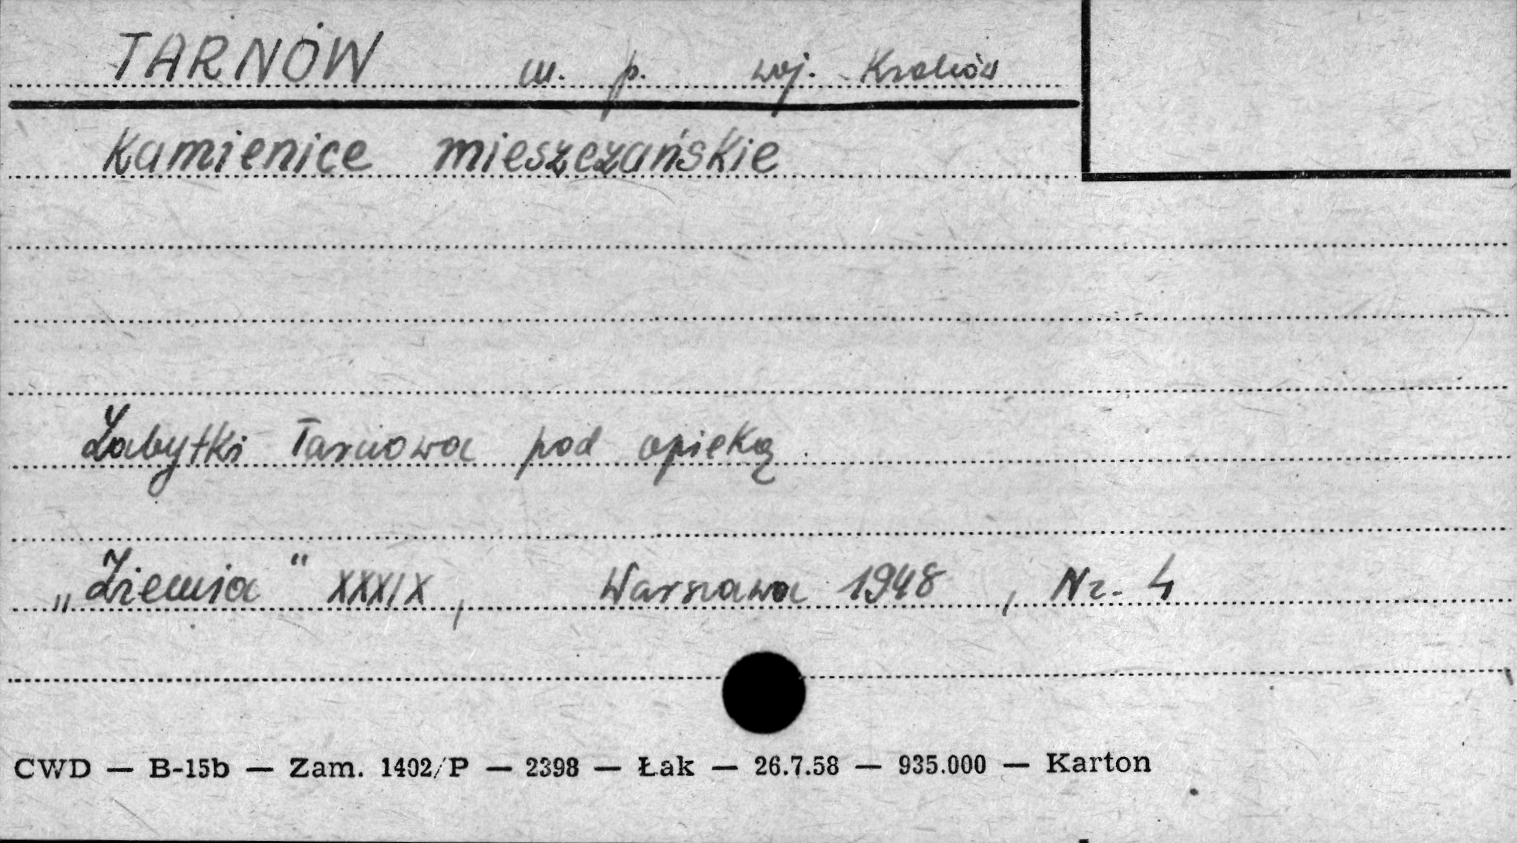 TARNÓW m. p. woj. Kraków
Kamienice mieszczańskie
Zabytki Tarnowa pod opieką.
„Ziemia" XXXIX, Warszawa 1948, Nr. 4
CWD — B-15b — Zam. 1402/P — 2398 — Łak — 26.7.58 — 935.000 — Karton